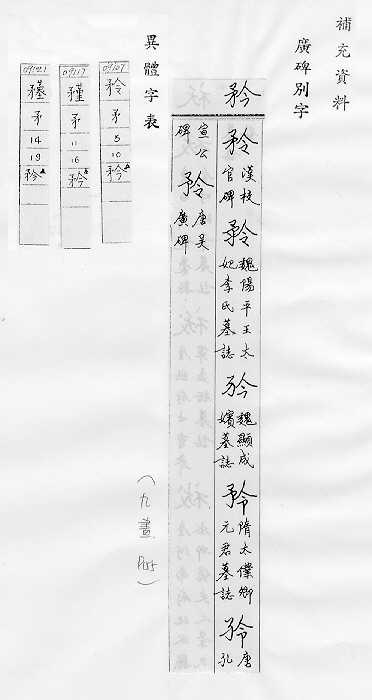 補充資料
廣碑別字
矜
矝 漢校官碑
矝 魏陽平王太妃李氏墓誌
矜 魏顯成嬪墓誌
矝 隋太僕卿元君墓誌
矝 唐孔
宣公碑
矝 唐吳廣碑
(九畫 P155)
異體字表
09107
矝
矛
5
10
矜
09117
矛
11
16
矜
09121
矛
14
19
矜